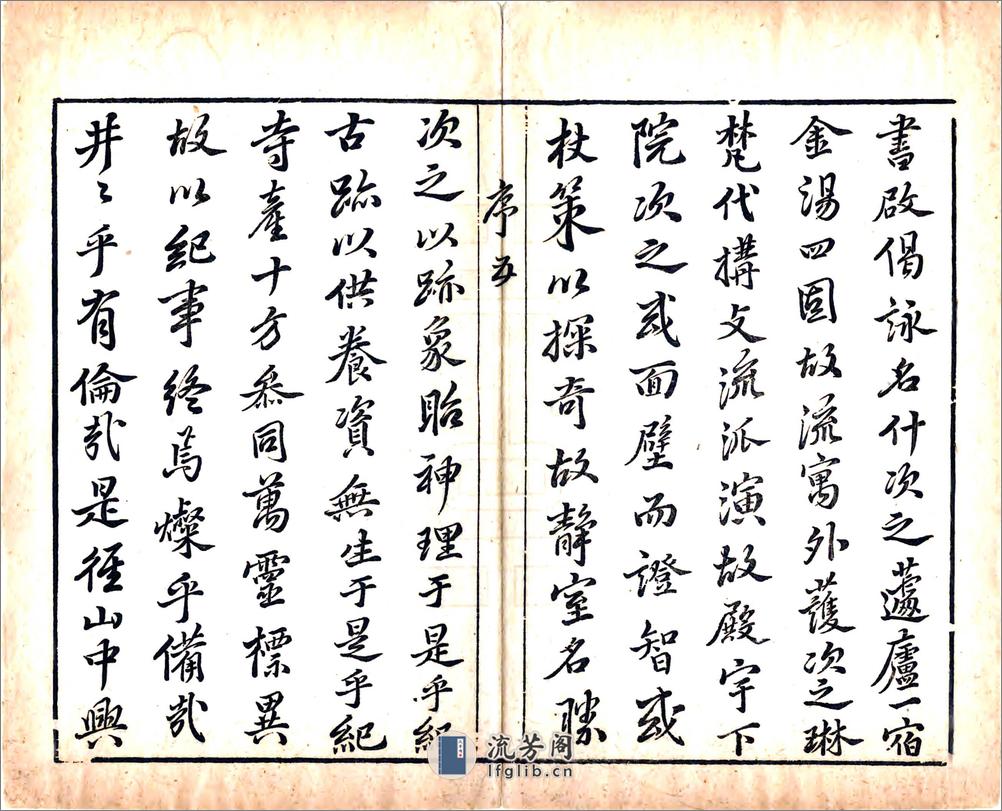 書啟偈詠名什次之蘧廬一宿
金湯四固故流寓外護次之琳
梵代搆支流派演故殿宇下
院次之或面壁而證智或
杖策以探奇故静室名勝
序五
次之以跡象貽神理于是乎紀
古跡以供養資無生于是乎紀
寺產十方叅同萬靈標異
故以紀事終焉燦乎備哉
井〻乎有倫哉是徑山中興
流芳阁
lfglib.cn